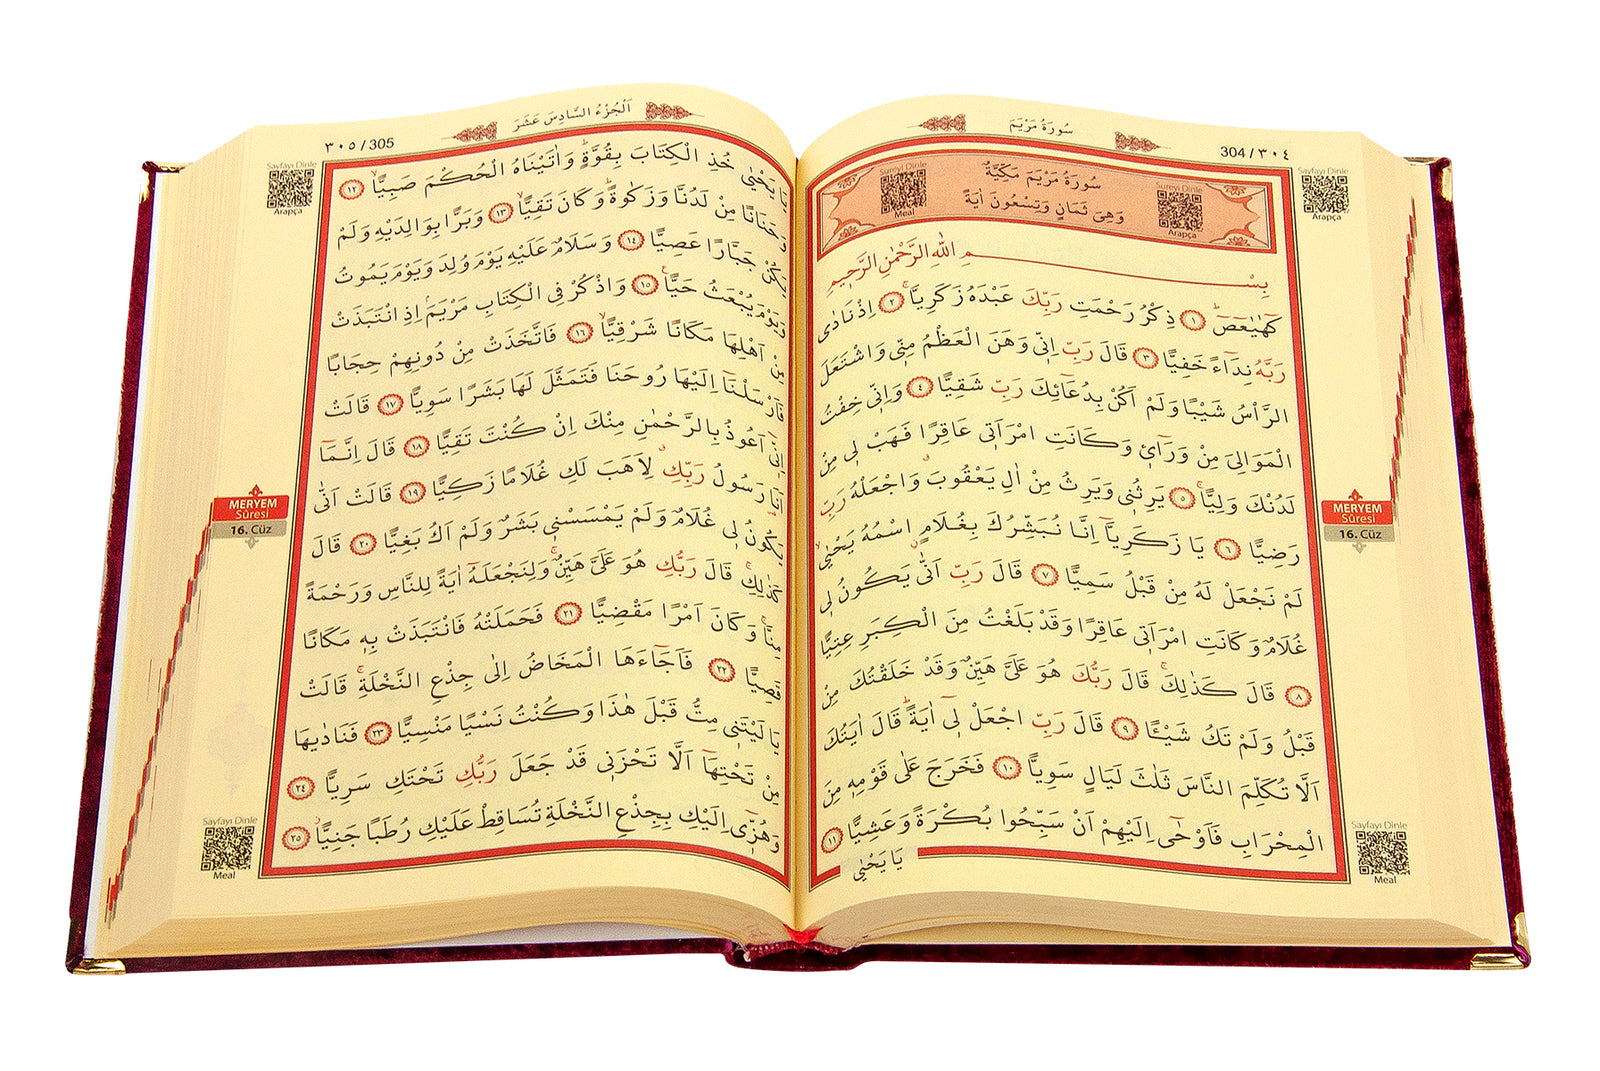 سُورَةُ مَرْيَمَ
304/٣٠٤
Sayfayı Dinle
Arapça
Sureyi Dinle
Meal
Sureyi Dinle
Arapça
سُورَةُ مَرْيَمَ مَكِّيَّةٌ
وَهِىَ ثَمَانٍ وَتِسْعُونَ اٰيَةً
بِسْمِ اللّٰهِ الرَّحْمٰنِ الرَّحٖيمِ
كٓهٰيٰعٓصٓ ١ ذِكْرُ رَحْمَتِ رَبِّكَ عَبْدَهُ زَكَرِيَّا ٢ اِذْ نَادٰى
رَبَّهُ نِدَٓاءً خَفِيًّا ٣ قَالَ رَبِّ اِنّٖى وَهَنَ الْعَظْمُ مِنّٖى وَاشْتَعَلَ
الرَّأْسُ شَيْبًا وَلَمْ اَكُنْ بِدُعَٓائِكَ رَبِّ شَقِيًّا ٤ وَاِنّٖى خِفْتُ
الْمَوَالِىَ مِنْ وَرَٓاءٖى وَكَانَتِ امْرَاَتٖى عَاقِرًا فَهَبْ لٖى مِنْ
لَدُنْكَ وَلِيًّا ٥ يَرِثُنٖى وَيَرِثُ مِنْ اٰلِ يَعْقُوبَ وَاجْعَلْهُ رَبِّ
رَضِيًّا ٦ يَا زَكَرِيَّٓا اِنَّا نُبَشِّرُكَ بِغُلَامٍ اسْمُهُ يَحْيٰى
لَمْ نَجْعَلْ لَهُ مِنْ قَبْلُ سَمِيًّا ٧ قَالَ رَبِّ اَنّٰى يَكُونُ لٖى
غُلَامٌ وَكَانَتِ امْرَاَتٖى عَاقِرًا وَقَدْ بَلَغْتُ مِنَ الْكِبَرِ عِتِيًّا
٨ قَالَ كَذٰلِكَ قَالَ رَبُّكَ هُوَ عَلَىَّ هَيِّنٌ وَقَدْ خَلَقْتُكَ مِنْ
قَبْلُ وَلَمْ تَكُ شَيْـًٔا ٩ قَالَ رَبِّ اجْعَلْ لٖٓى اٰيَةً قَالَ اٰيَتُكَ
اَلَّا تُكَلِّمَ النَّاسَ ثَلٰثَ لَيَالٍ سَوِيًّا ١٠ فَخَرَجَ عَلٰى قَوْمِهٖ مِنَ
الْمِحْرَابِ فَاَوْحٰٓى اِلَيْهِمْ اَنْ سَبِّحُوا بُكْرَةً وَعَشِيًّا ١١
يَا يَحْيٰى
MERYEM
Sûresi
16. Cüz
Sayfayı Dinle
Meal
اَلْجُزْءُ السَّادِسَ عَشَرَ
٣٠٥/305
Sayfayı Dinle
Arapça
يَا يَحْيٰى خُذِ الْكِتَابَ بِقُوَّةٍ وَاٰتَيْنَاهُ الْحُكْمَ صَبِيًّا ١٢
وَحَنَانًا مِنْ لَدُنَّا وَزَكٰوةً وَكَانَ تَقِيًّا ١٣ وَبَرًّا بِوَالِدَيْهِ وَلَمْ
يَكُنْ جَبَّارًا عَصِيًّا ١٤ وَسَلَامٌ عَلَيْهِ يَوْمَ وُلِدَ وَيَوْمَ يَمُوتُ
وَيَوْمَ يُبْعَثُ حَيًّا ١٥ وَاذْكُرْ فِى الْكِتَابِ مَرْيَمَ اِذِ انْتَبَذَتْ
مِنْ اَهْلِهَا مَكَانًا شَرْقِيًّا ١٦ فَاتَّخَذَتْ مِنْ دُونِهِمْ حِجَابًا
فَاَرْسَلْنَٓا اِلَيْهَا رُوحَنَا فَتَمَثَّلَ لَهَا بَشَرًا سَوِيًّا ١٧ قَالَتْ
اِنّٖٓى اَعُوذُ بِالرَّحْمٰنِ مِنْكَ اِنْ كُنْتَ تَقِيًّا ١٨ قَالَ اِنَّمَٓا
اَنَا رَسُولُ رَبِّكِ لِاَهَبَ لَكِ غُلَامًا زَكِيًّا ١٩ قَالَتْ اَنّٰى
يَكُونُ لٖى غُلَامٌ وَلَمْ يَمْسَسْنٖى بَشَرٌ وَلَمْ اَكُ بَغِيًّا ٢٠ قَالَ
كَذٰلِكِ قَالَ رَبُّكِ هُوَ عَلَىَّ هَيِّنٌ وَلِنَجْعَلَهُٓ اٰيَةً لِلنَّاسِ وَرَحْمَةً
مِنَّا وَكَانَ اَمْرًا مَقْضِيًّا ٢١ فَحَمَلَتْهُ فَانْتَبَذَتْ بِهٖ مَكَانًا
قَصِيًّا ٢٢ فَاَجَٓاءَهَا الْمَخَاضُ اِلٰى جِذْعِ النَّخْلَةِ قَالَتْ
يَا لَيْتَنٖى مِتُّ قَبْلَ هٰذَا وَكُنْتُ نَسْيًا مَنْسِيًّا ٢٣ فَنَادٰيهَا
مِنْ تَحْتِهَٓا اَلَّا تَحْزَنٖى قَدْ جَعَلَ رَبُّكِ تَحْتَكِ سَرِيًّا ٢٤
وَهُزّٖٓى اِلَيْكِ بِجِذْعِ النَّخْلَةِ تُسَاقِطْ عَلَيْكِ رُطَبًا جَنِيًّا ٢٥
MERYEM
Sûresi
16. Cüz
Sayfayı Dinle
Meal